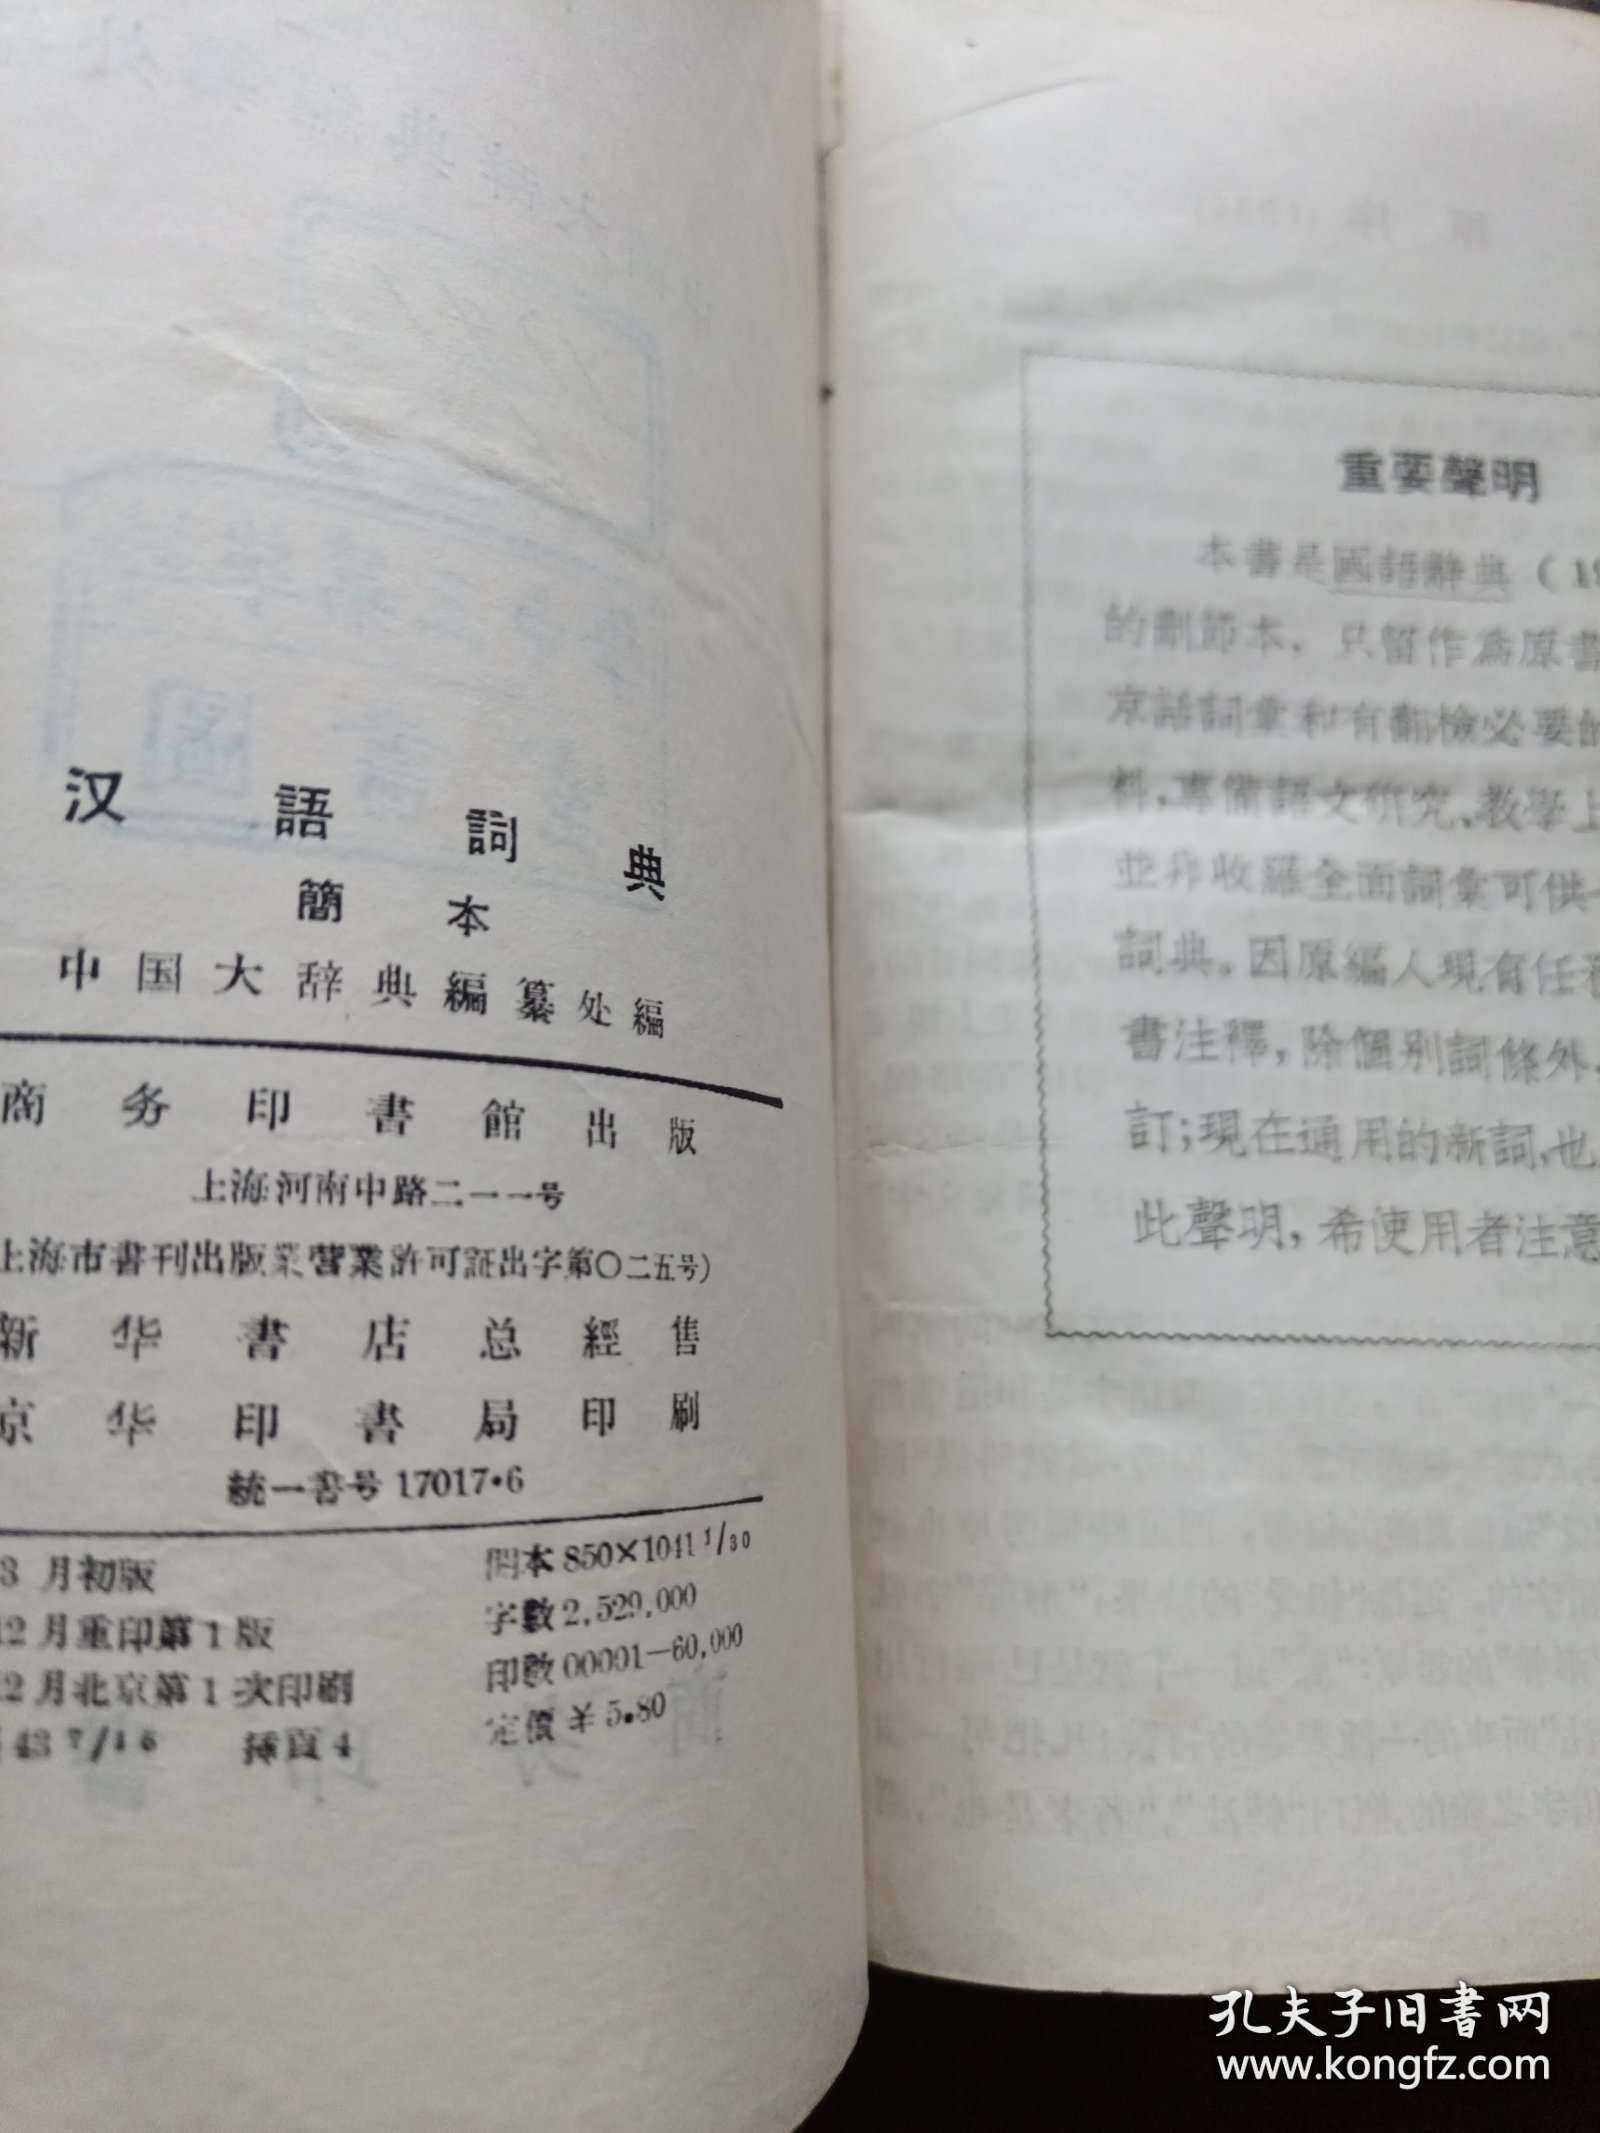 汉語詞典
簡本
中国大辞典編纂处編
商务印書館出版
上海河南中路二一一号
上海市書刊出版業营業許可証出字第〇二五号)
新华書店总經售
京华印書局印刷
統一書号 17017·6
3 月初版
12月重印第1版
12月北京第1次印刷
43 7/15 插頁 4
開本 850×1041 1/30
字數 2,529,000
印数 00001—60,000
定價 ¥ 5.80
重要聲明
本書是國語辭典(19
的刪節本，只留作為原書
京語詞彙和有翻檢必要的
料，專備語文研究、教學上
並非收羅全面詞彙可供
詞典。因原編人現有任務
書注釋，除個别詞條外，
訂；現在通用的新詞，也
此聲明，希使用者注意
孔夫子旧書网
www.kongfz.com